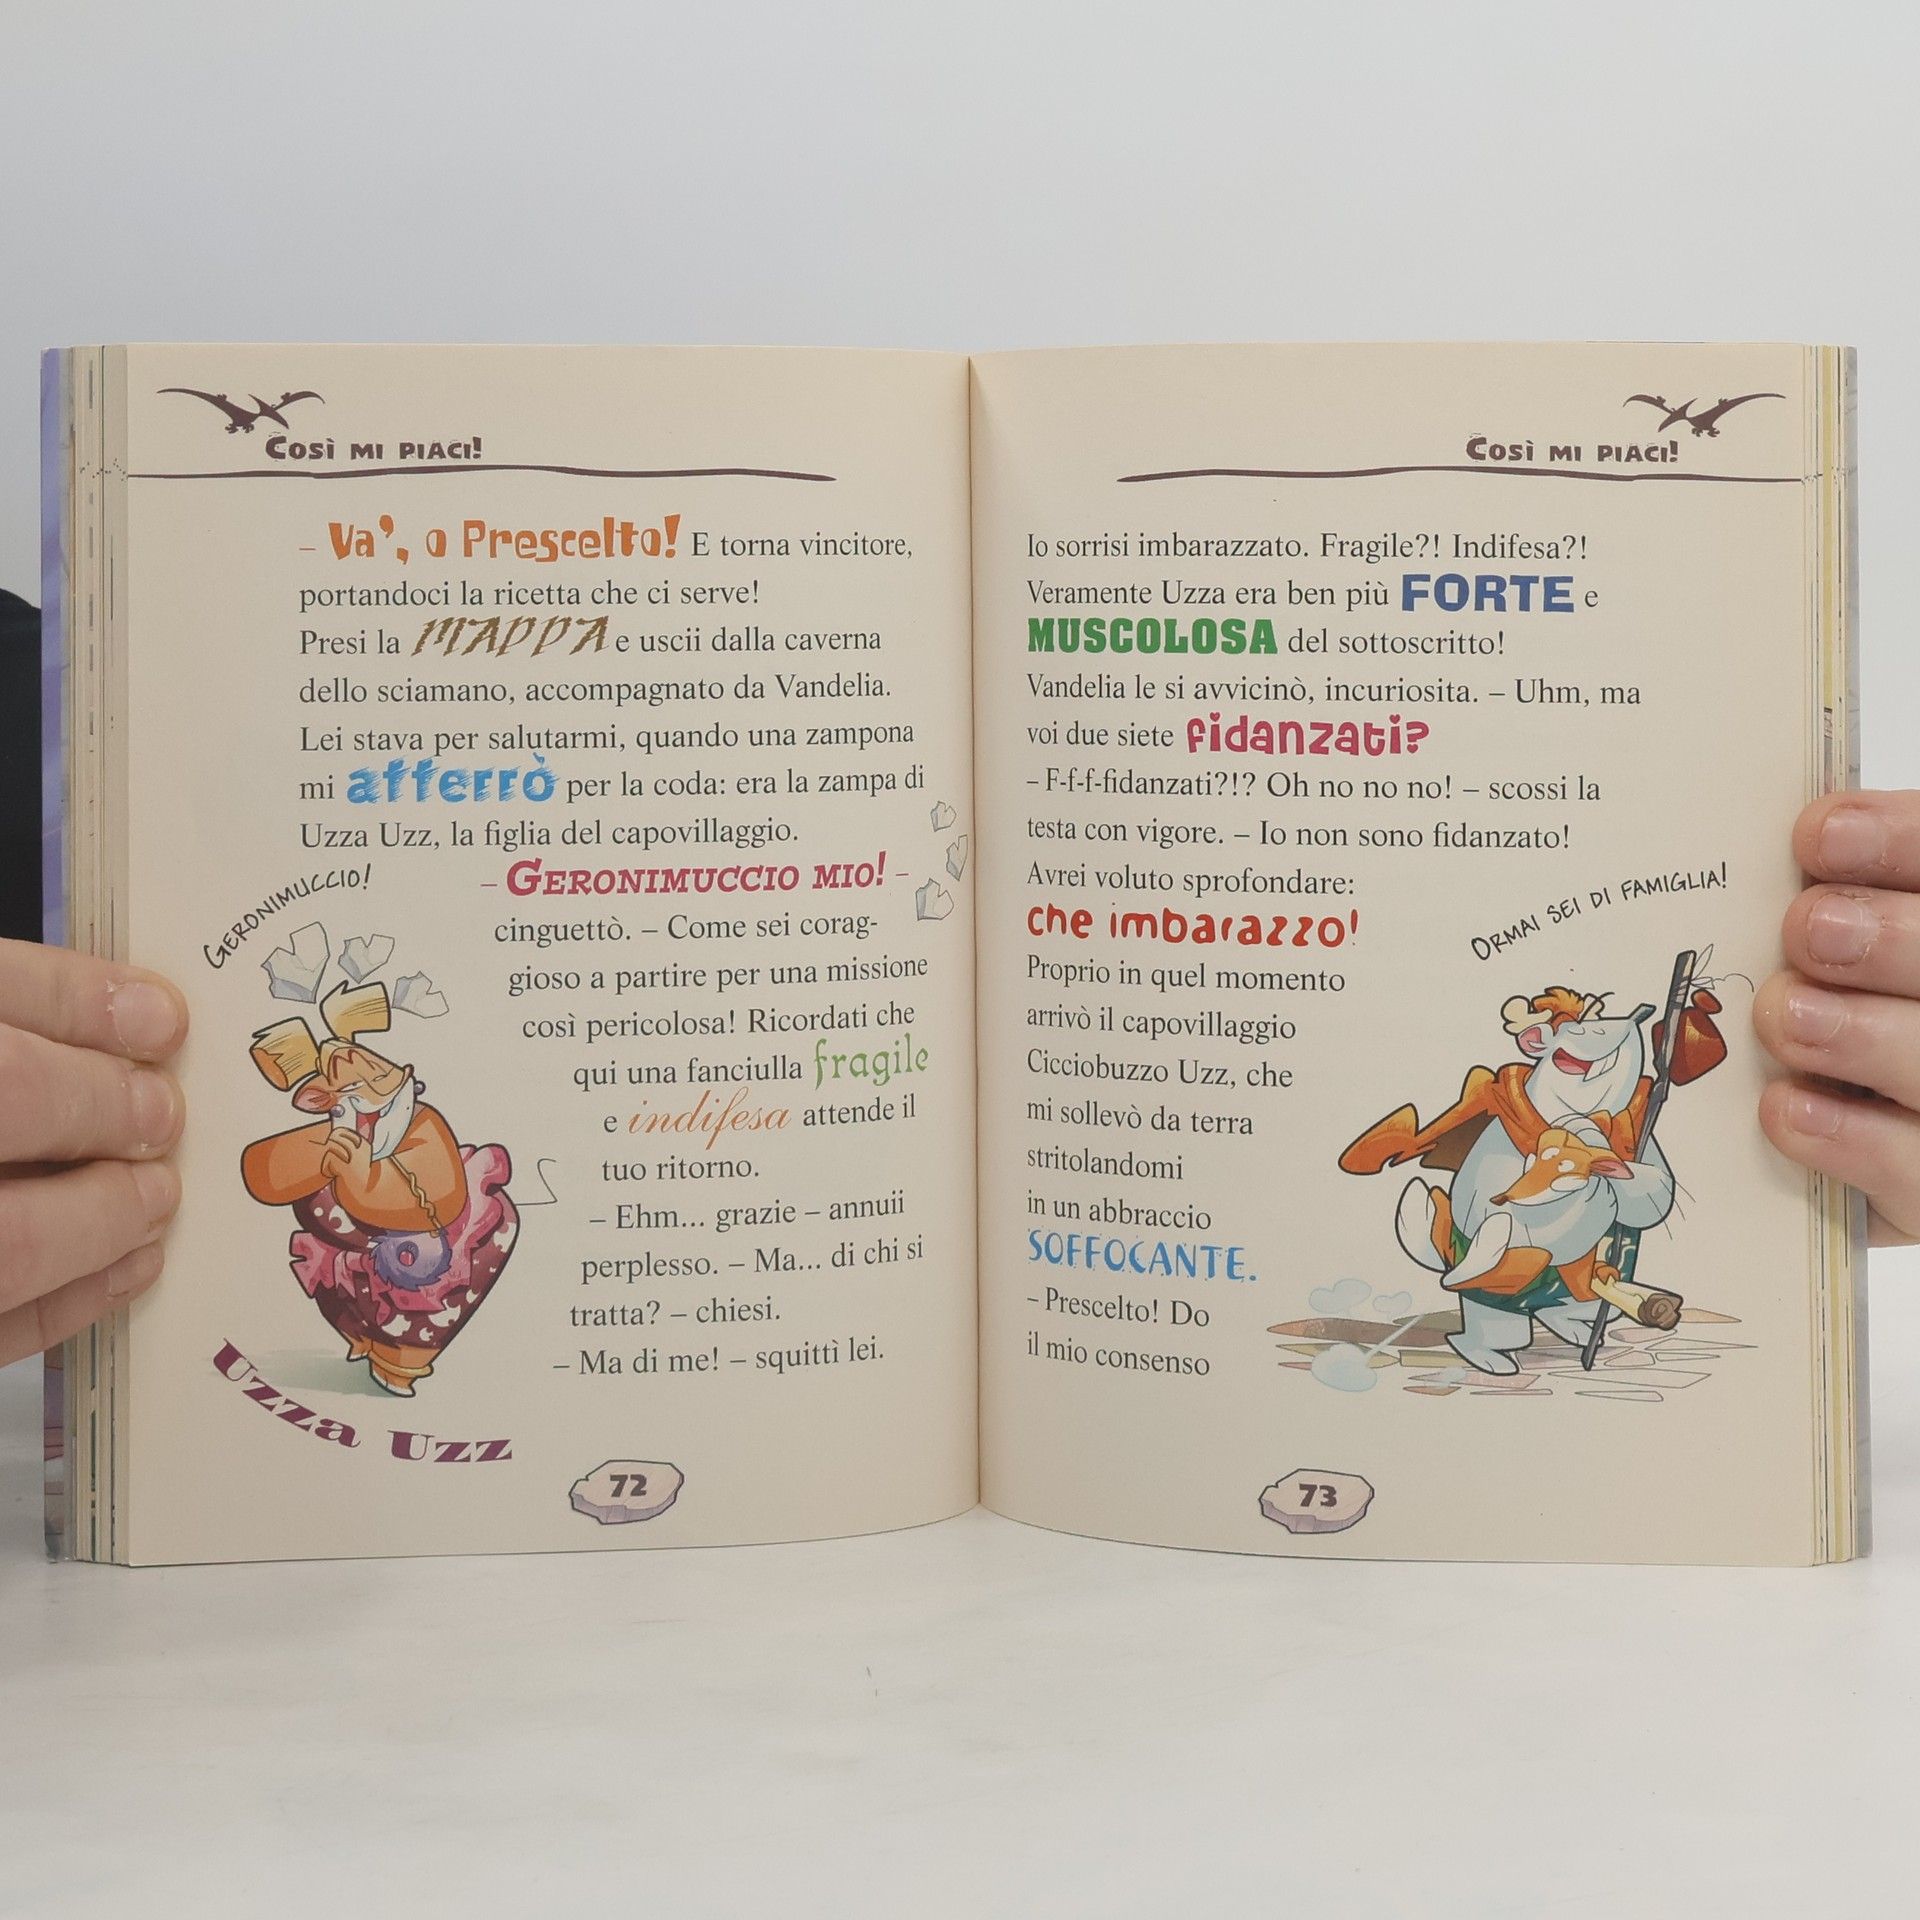 Così mi piaci!
– Va', o Prescelto! E torna vincitore,
portandoci la ricetta che ci serve!
Presi la MAPPA e uscii dalla caverna
dello sciamano, accompagnato da Vandelia.
Lei stava per salutarmi, quando una zampona
mi afferrò per la coda: era la zampa di
Uzza Uzz, la figlia del capovillaggio.
– GERONIMUCCIO MIO! –
cinguettò. – Come sei corag-
gioso a partire per una missione
così pericolosa! Ricordati che
qui una fanciulla fragile
e indifesa attende il
tuo ritorno.
– Ehm... grazie – annuii
perplesso. – Ma... di chi si
tratta? – chiesi.
– Ma di me! – squittì lei.
GERONIMUCCIO!
Uzza Uzz
72
Così mi piaci!
Io sorrisi imbarazzato. Fragile?! Indifesa?!
Veramente Uzza era ben più FORTE e
MUSCOLOSA del sottoscritto!
Vandelia le si avvicinò, incuriosita. – Uhm, ma
voi due siete fidanzati?
– F-f-f-fidanzati?!? Oh no no no! – scossi la
testa con vigore. – Io non sono fidanzato!
Avrei voluto sprofondare:
che imbarazzo!
Proprio in quel momento
arrivò il capovillaggio
Cicciobuzzo Uzz, che
mi sollevò da terra
stritolandomi
in un abbraccio
SOFFOCANTE.
– Prescelto! Do
il mio consenso
ORMAI SEI DI FAMIGLIA!
73